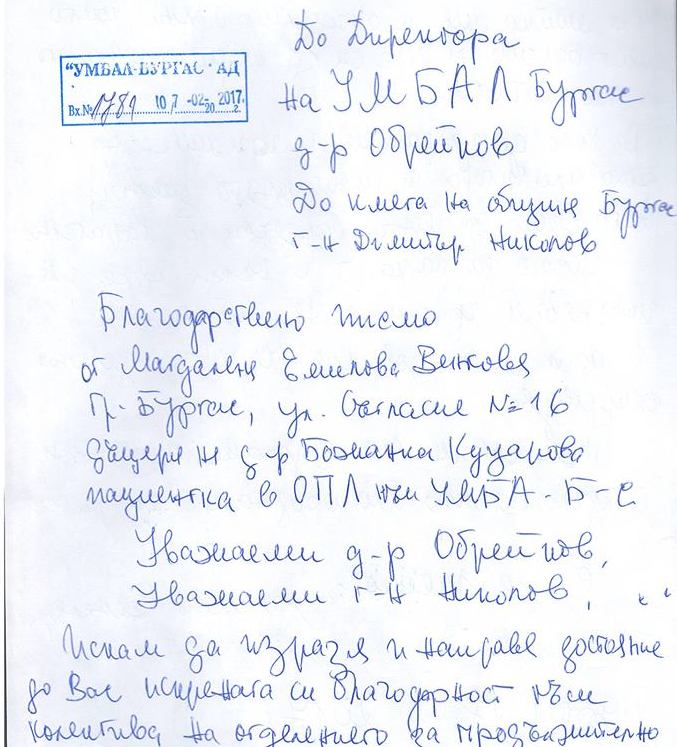 "УМБАЛ-БУРГАС" АД
Вх.№ 1781 10, 7 -02- 20 2017 г.
До Директора
на УМБАЛ Бургас
д-р Обрейков
До кмета на община Бургас
г-н Димитър Николов
Благодарствено писмо
от Магдалена Емилова Венкова
гр. Бургас, ул. Съгласие № 16
дъщеря на д-р Божанка Куцарова
пациентка в ОПЛ към УМБА - Б-с
Уважаеми д-р Обрейков,
Уважаеми г-н Николов,
Искам да изразя и направя достояние
до Вас искрената си благодарност към
колектива на отделението за продължително